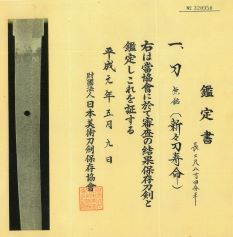 № 328358
鑑定書
一、刀 無銘(新々刀寿命)
右は當協會に於て審査の結果保存刀剣と
鑑定しこれを証する
平成元年五月九日
財團法人日本美術刀剣保存協會